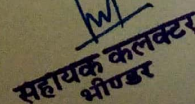 सहायक कलक्टर
भीण्डर